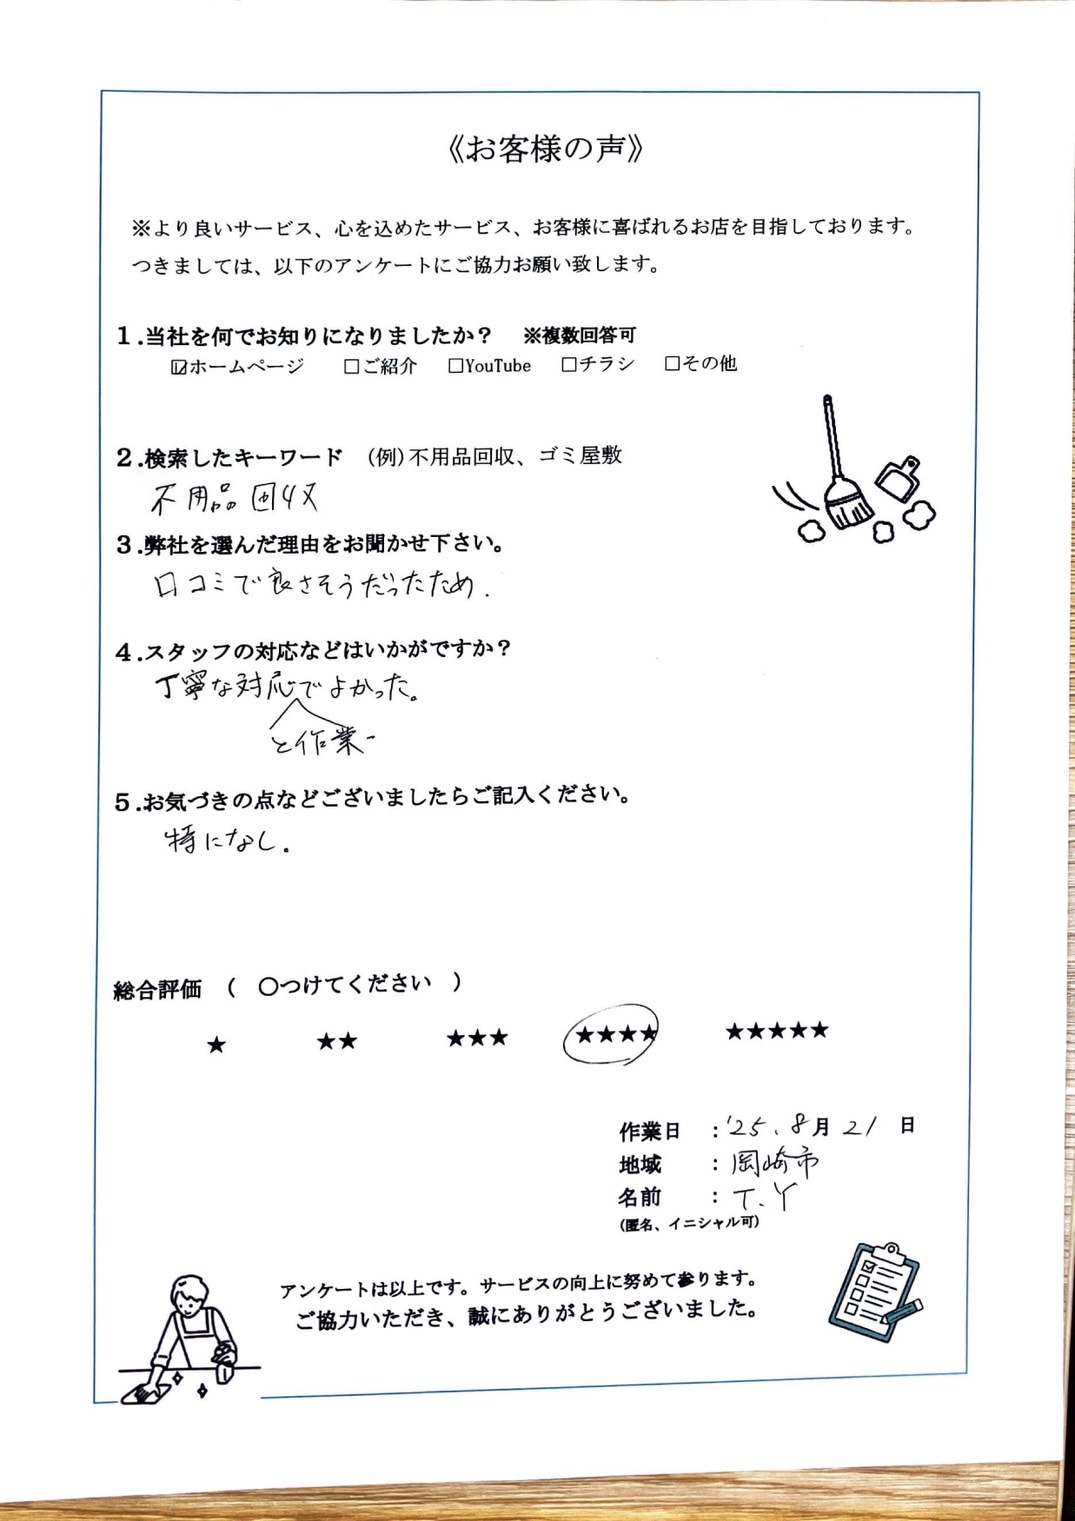 《お客様の声》
※より良いサービス、心を込めたサービス、お客様に喜ばれるお店を目指しております。
つきましては、以下のアンケートにご協力お願い致します。
１.当社を何でお知りになりましたか？　※複数回答可
☑ホームページ　□ご紹介　□YouTube　□チラシ　□その他
２.検索したキーワード　(例)不用品回収、ゴミ屋敷
不用品回収
３.弊社を選んだ理由をお聞かせ下さい。
口コミで良さそうだったため.
４.スタッフの対応などはいかがですか？
丁寧な対応でよかった。
と作業
５.お気づきの点などございましたらご記入ください。
特になし.
総合評価　(　○つけてください　)
★　★★　★★★　★★★★　★★★★★
作業日　：'25、8月21日
地域　：岡崎市
名前　：T.Y
(匿名、イニシャル可)
アンケートは以上です。サービスの向上に努めて参ります。
ご協力いただき、誠にありがとうございました。